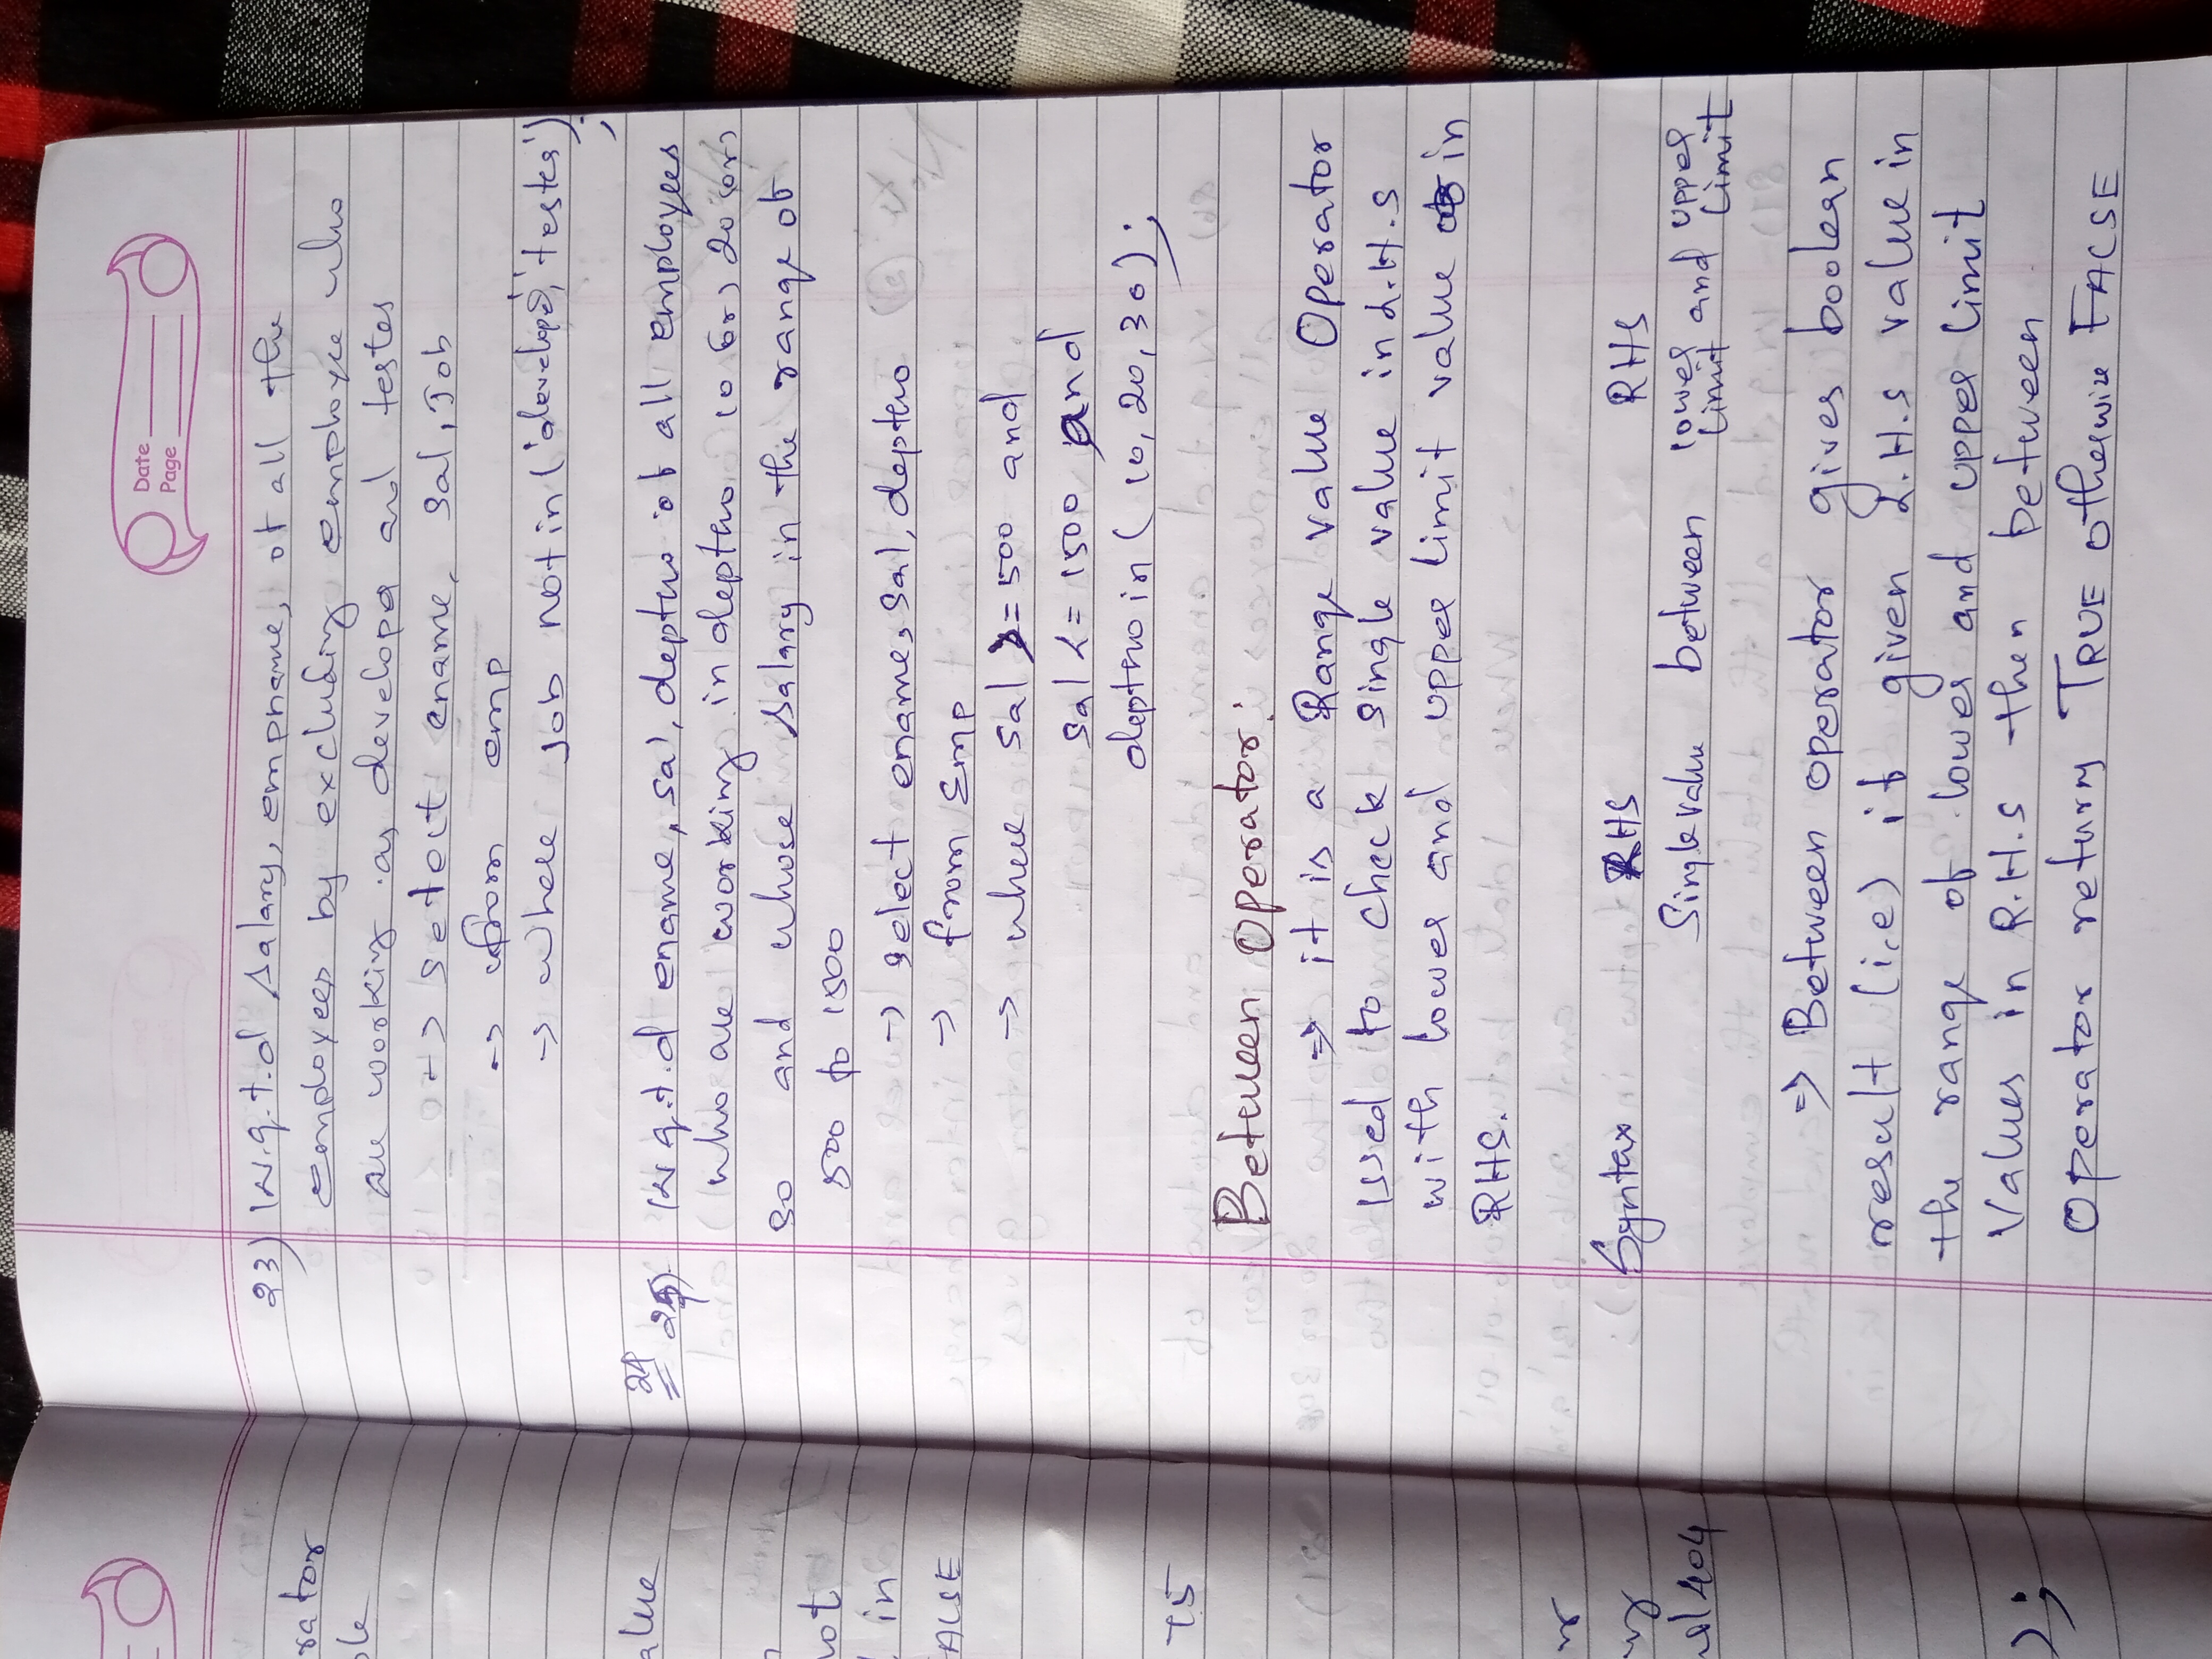 Date
Page
23) W.q.t.d salary, empname, of all the
employees by excluding employee who
are working as developer and tester
-> select ename, sal, Job
-> from emp
-> where Job not in ('developer', 'tester');
24 W q.t.d ename, sal, deptno of all employees
who are working in deptno 10 (or) 20 (or)
30 and whose salary in the range of
500 to 1500
-> select ename, sal, deptno
-> from Emp
-> where sal >= 500 and
sal <= 1500 and
deptno in ( 10, 20, 30 );
Between Operator:
=> it is a Range value Operator
used to check single value in L.H.S
with lower and upper limit value in
RHS.
Syntax RHS RHS
Single value between lower limit and upper limit
=> Between operator gives boolean
result (i.e) if given L.H.S value in
the range of lower and upper limit
Values in R.H.S then between
Operator returns TRUE otherwise FALSE
rator
ole
alue
not
in
FALSE
75
404
);